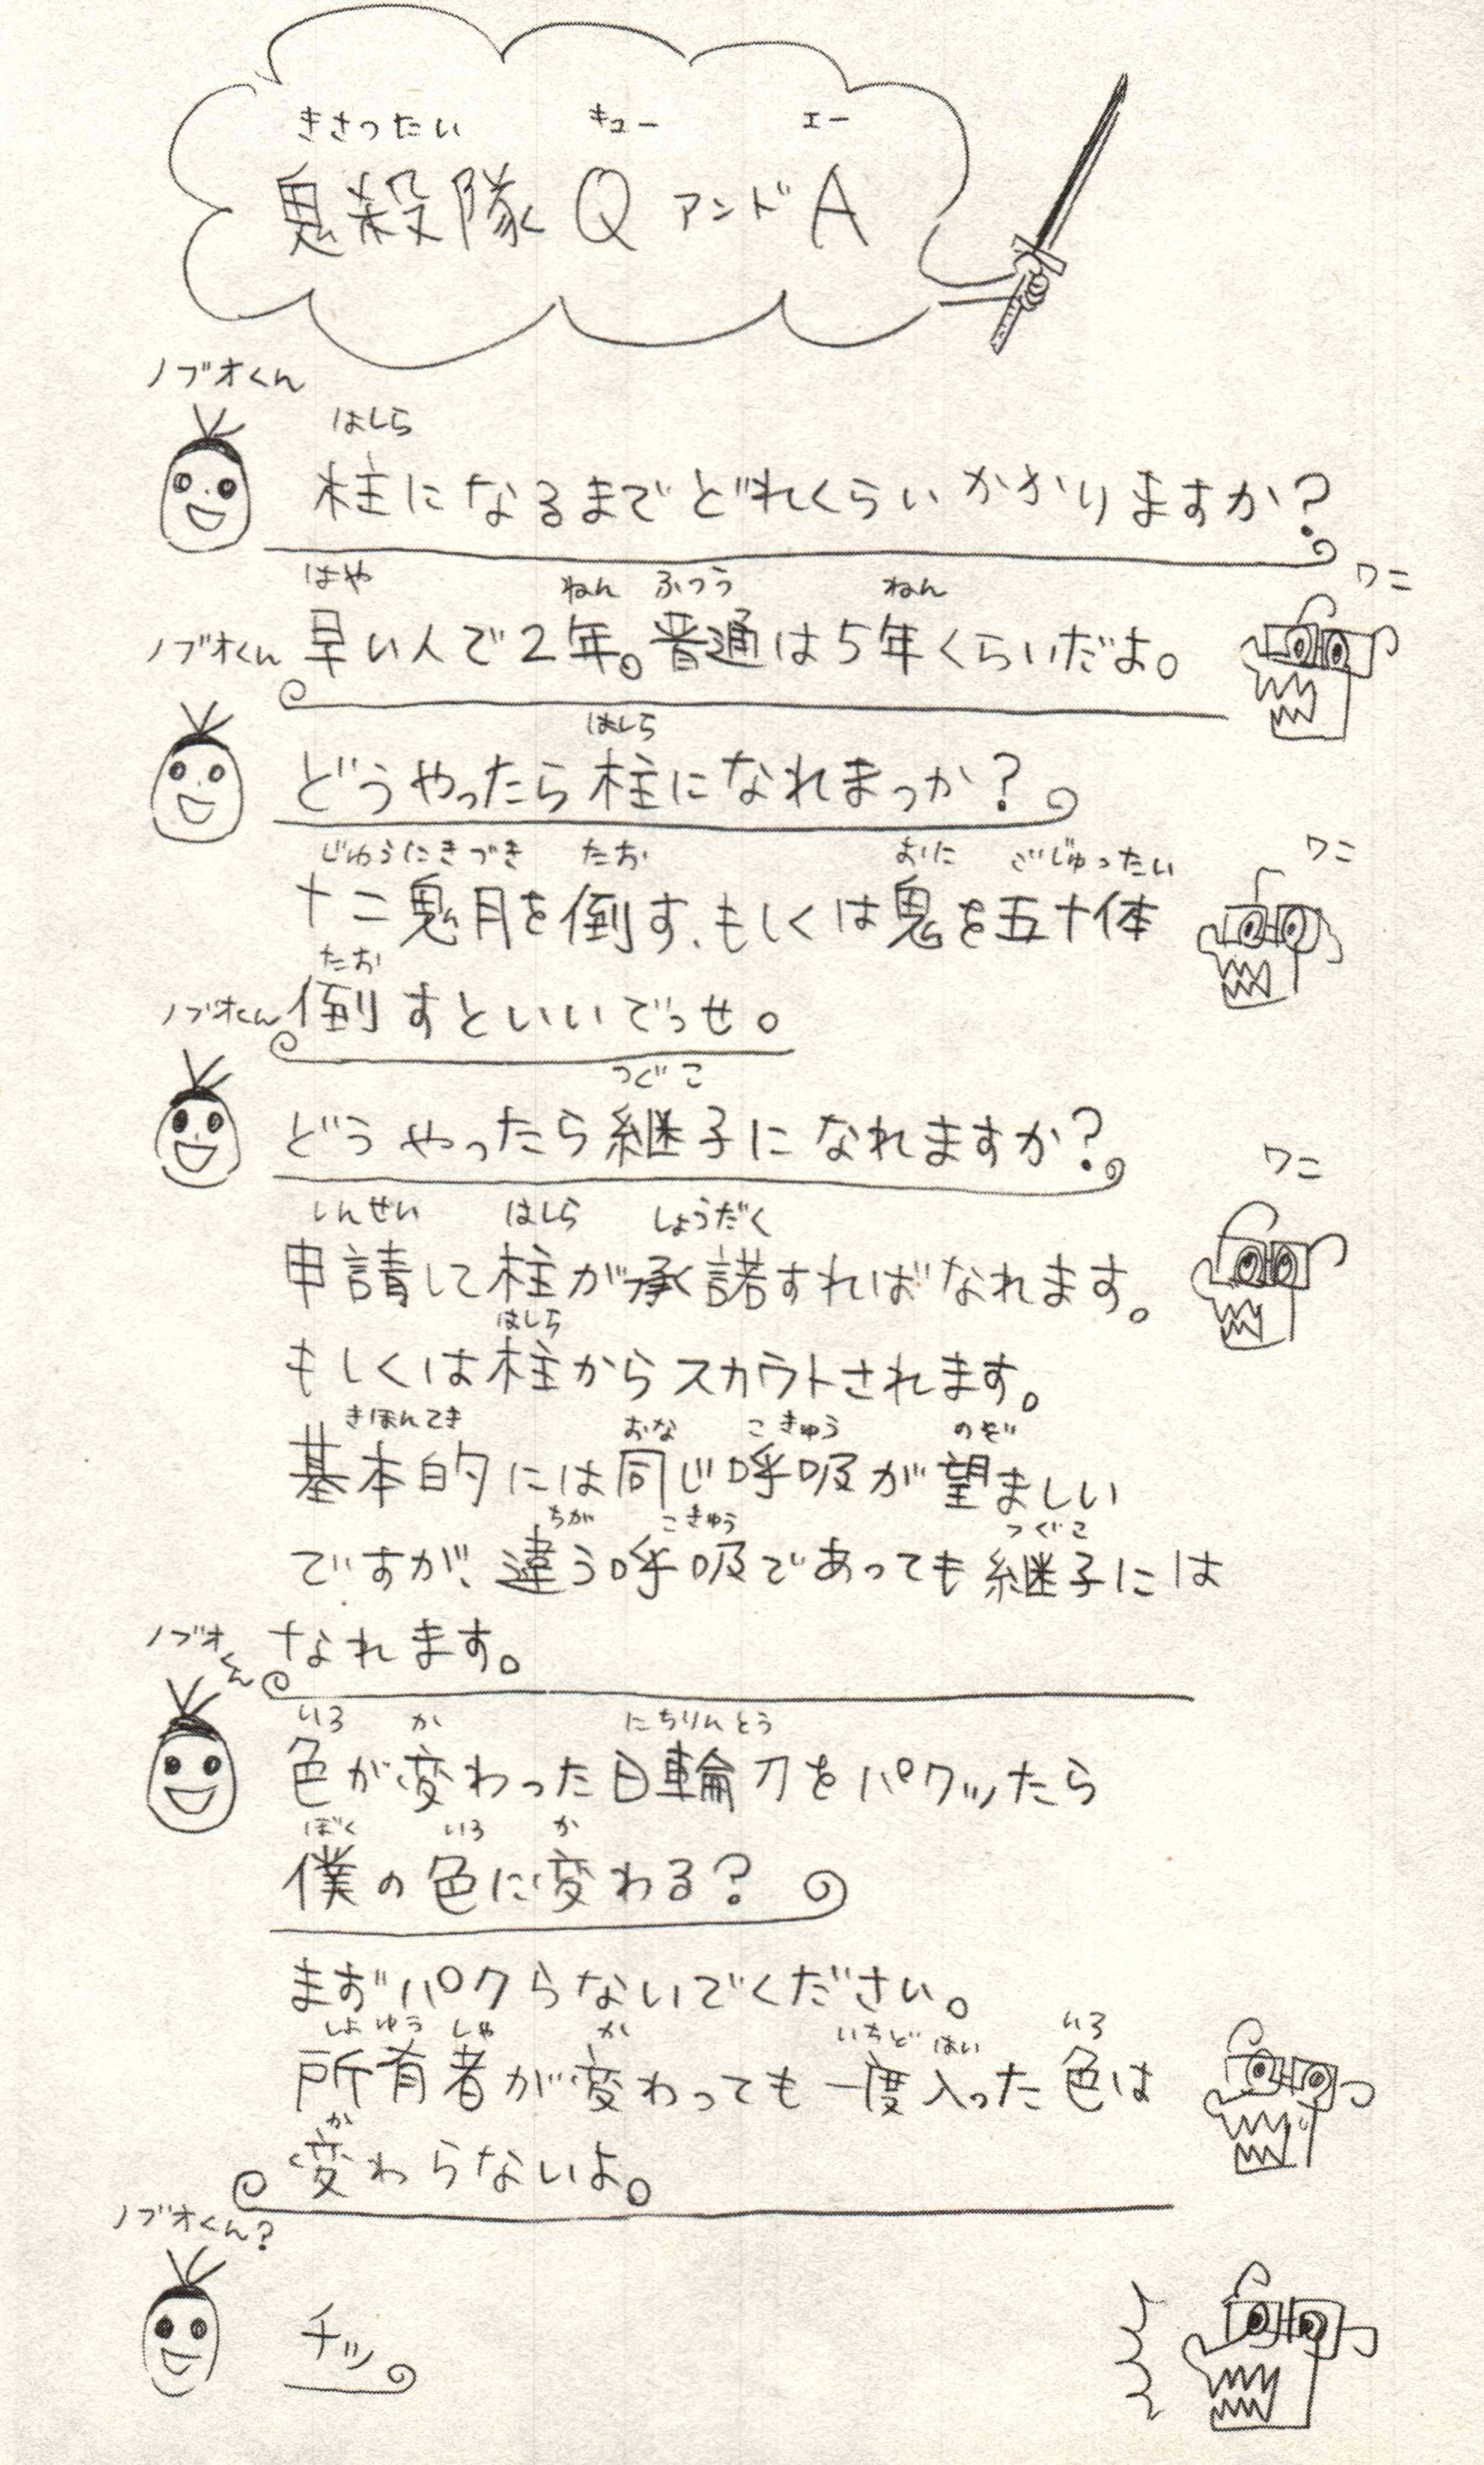 きさったい キュー エー
鬼殺隊 Q アンド A
ノブオくん
はしら
柱になるまでどれくらいかかりますか?
はや ねん ふつう ねん
早い人で2年。普通は5年くらいだよ。
ワニ
ノブオくん
はしら
どうやったら柱になれまっか?
じゅうにきづき たお おに ごじゅったい
十二鬼月を倒す、もしくは鬼を五十体
ワニ
たお
倒すといいでっせ。
ノブオくん
つぐこ
どうやったら継子になれますか?
ワニ
しんせい はしら しょうだく
申請して柱が承諾すればなれます。
はしら
もしくは柱からスカウトされます。
きほんてき おな こきゅう のぞ
基本的には同じ呼吸が望ましい
ちが こきゅう つぐこ
ですが、違う呼吸であっても継子には
なれます。
ノブオくん
いろ か にちりんとう
色が変わった日輪刀をパクッたら
ぼく いろ か
僕の色に変わる?
まずパクらないでください。
しょゆうしゃ か いちど はい いろ
所有者が変わっても一度入った色は
か
変わらないよ。
ノブオくん?
チッ